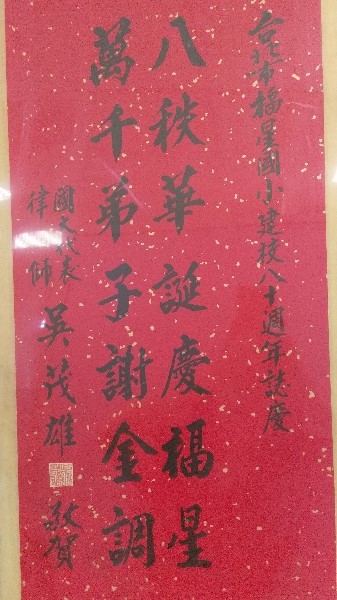 台北市福星國小建校八十週年誌慶
八秩華誕慶福星
萬千弟子謝金調
國大代表
律師
吳茂雄
敬賀